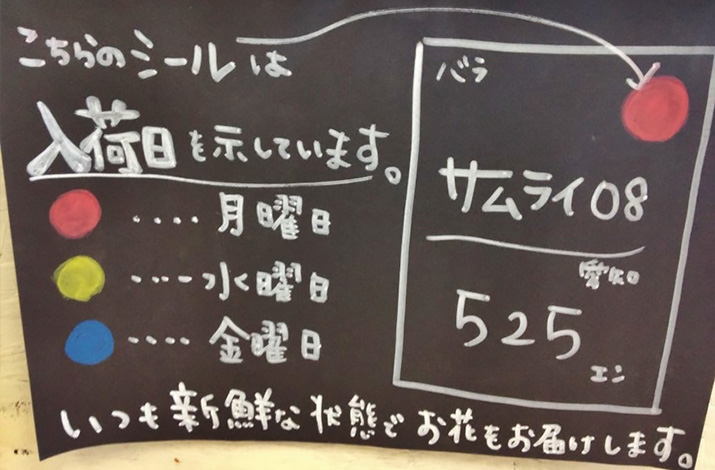 こちらのシールは
入荷日を示しています。
・・・・月曜日
・・・・水曜日
・・・・金曜日
バラ
サムライ08
愛知
525
エン
いつも新鮮な状態でお花をお届けします。